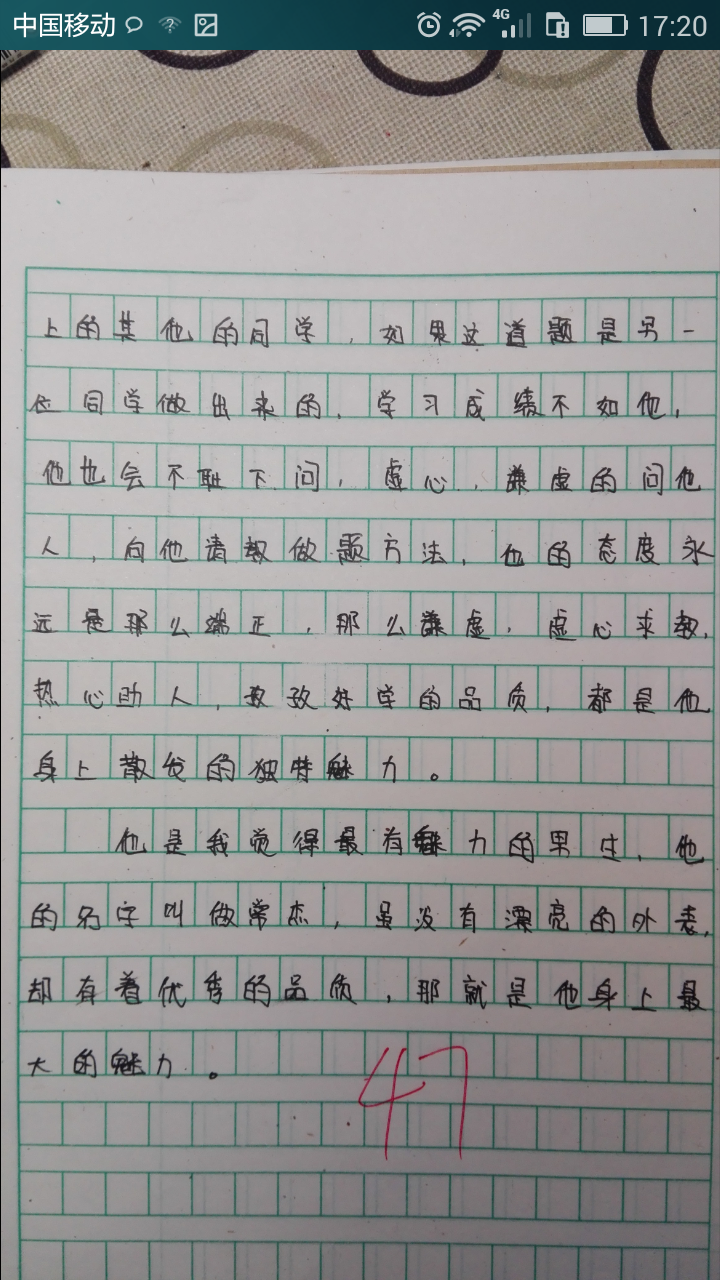 中国移动 4G 17:20
上的其他的同学，如果这道题是另一
位同学做出来的，学习成绩不如他，
他也会不耻下问，虚心，谦虚的问他
人，向他请教做题方法，他的态度永
远是那么端正，那么谦虚，虚心求教，
热心助人，孜孜好学的品质，都是他
身上散发的独特魅力。
他是我觉得最有魅力的男生，他
的名字叫做常杰，虽没有漂亮的外表，
却有着优秀的品质，那就是他身上最
大的魅力。
47